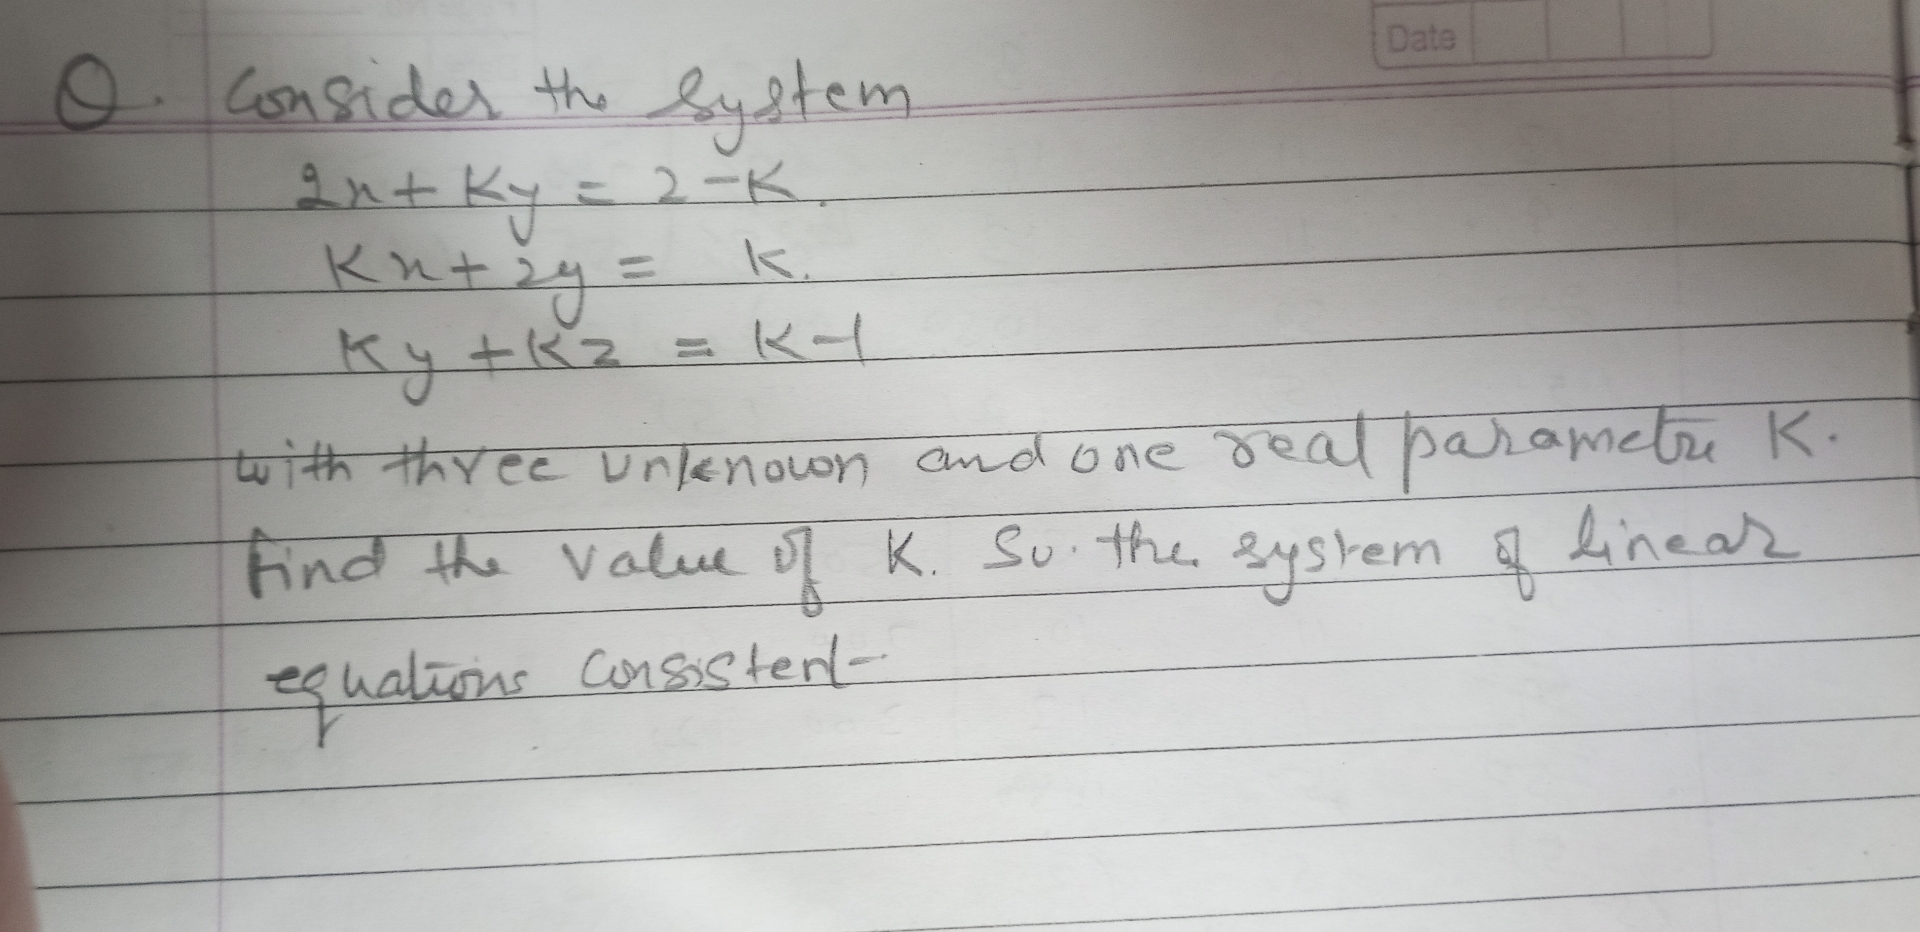 Date
Q. Consider the system
2x + Ky = 2 - K.
Kx + 2y = K.
Ky + Kz = K-1
with three unknown and one real parametre K.
Find the value of K. So. the system of linear
equations Consistent